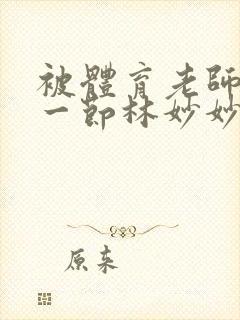 被體育老師
一節林妙妙
原来